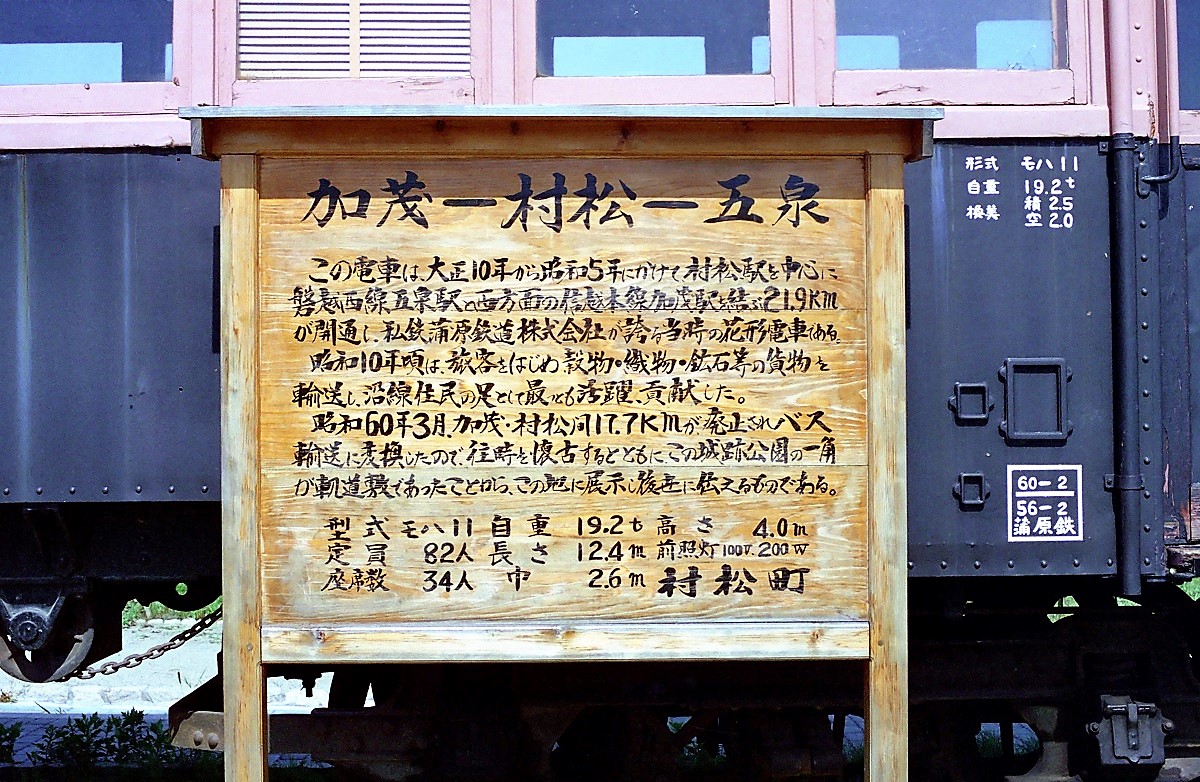 加茂ー村松ー五泉
この電車は、大正10年から昭和5年にかけて村松駅を中心に
磐越西線五泉駅と西方面の信越本線加茂駅を結ぶ21.9KM
が開通し、私鉄蒲原鉄道株式会社が誇る当時の花形電車である。
昭和10年頃は、旅客をはじめ穀物・織物・鉱石等の貨物を
輸送し、沿線住民の足として最も活躍、貢献した。
昭和60年3月、加茂・村松間17.7KMが廃止されバス
輸送に変換したので、往時を懐古するとともに、この城跡公園の一角
が軌道敷であったことから、この地に展示し後世に伝えるものである。
型式 モハ11 自重 19.2t 高さ 4.0m
定員 82人 長さ 12.4m 前照灯 100V.200W
座席数 34人 巾 2.6m 村松町
形式 モハ11
自重 19.2t
換算 積2.5
空2.0
60-2
56-2
蒲原鉄